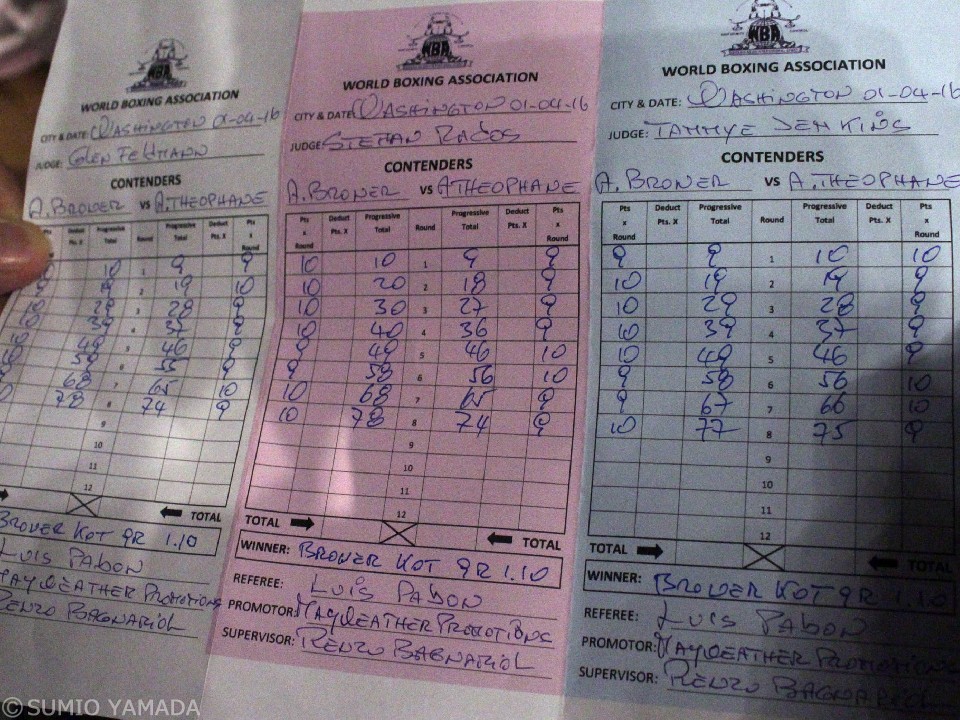 WBA
WORLD BOXING ASSOCIATION
CITY & DATE: WASHINGTON 01-04-16
JUDGE: GLEN FELDMANN
CONTENDERS
A. BRONER VS A.THEOPHANE
Pts Deduct Pts. X Progressive Total Round Progressive Total Pts x Round
10 10 1 9 9
9 19 2 19 10
10 29 3 28 9
10 39 4 37 9
10 49 5 46 9
10 59 6 55 9
9 68 7 65 10
10 78 8 74 9
9
10
11
12
TOTAL
BRONER KOT 9R 1.10
LUIS PABON
MAYWEATHER PROMOTIONS
RENZO BAGNARIOL
WBA
WORLD BOXING ASSOCIATION
CITY & DATE: WASHINGTON 01-04-16
JUDGE: STEFAN RADOS
CONTENDERS
A. BRONER VS A THEOPHANE
Pts x Round Deduct Pts. X Progressive Total Round Progressive Total Deduct Pts. X Pts x Round
10 10 1 9 9
10 20 2 18 9
10 30 3 27 9
10 40 4 36 9
9 49 5 46 10
9 58 6 56 10
10 68 7 65 9
10 78 8 74 9
9
10
11
12
TOTAL TOTAL
WINNER: BRONER KOT 9R 1.10
REFEREE: LUIS PABON
PROMOTOR: MAYWEATHER PROMOTIONS
SUPERVISOR: RENZO BAGNARIOL
WBA
WORLD BOXING ASSOCIATION
CITY & DATE: WASHINGTON 01-04-16
JUDGE: TAMMYE JENKINS
CONTENDERS
A. BRONER VS A. THEOPHANE
Pts x Round Deduct Pts. X Progressive Total Round Progressive Total Deduct Pts. X Pts x Round
9 9 1 10 10
10 19 2 19 9
10 29 3 28 9
10 39 4 37 9
10 49 5 46 9
9 58 6 56 10
9 67 7 66 10
10 77 8 75 9
9
10
11
12
TOTAL TOTAL
WINNER: BRONER KOT 9R 1.10
REFEREE: LUIS PABON
PROMOTOR: MAYWEATHER PROMOTIONS
SUPERVISOR: RENZO BAGNARIOL
© SUMIO YAMADA